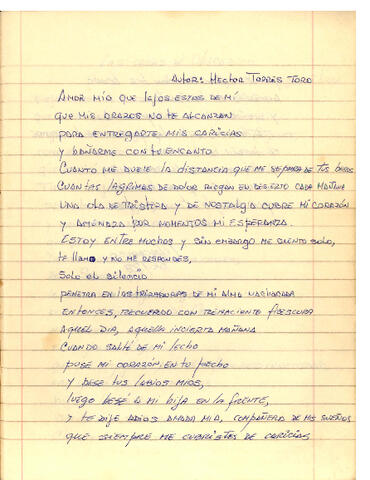 Autor: Hector Torres Toro
Amor mío que lejos estas de mí
que mis brazos no te alcanzan
para entregarte mis caricias
y bañarme con tu encanto
Cuanto me duele la distancia que me separa de tus besos
Cuantas lagrimas de dolor riegan en desierto cada mañana
una ola de tristeza y de nostalgia cubre mi corazón
y amenaza por momentos mi esperanza.
Estoy entre muchos y sin embargo me siento solo,
te llamo y no me respondes,
Solo el silencio
penetra en las de mi alma
entonces, recuerdo con frescura
aquel dia, aquella incierta mañana
cuando salté de mi lecho
puse mi corazón en tu pecho
y bese tus labios mios,
luego besé a mi hija en la frente,
y te dije adios amada mia, compañera de mis sueños
que siempre me cubristes de caricias